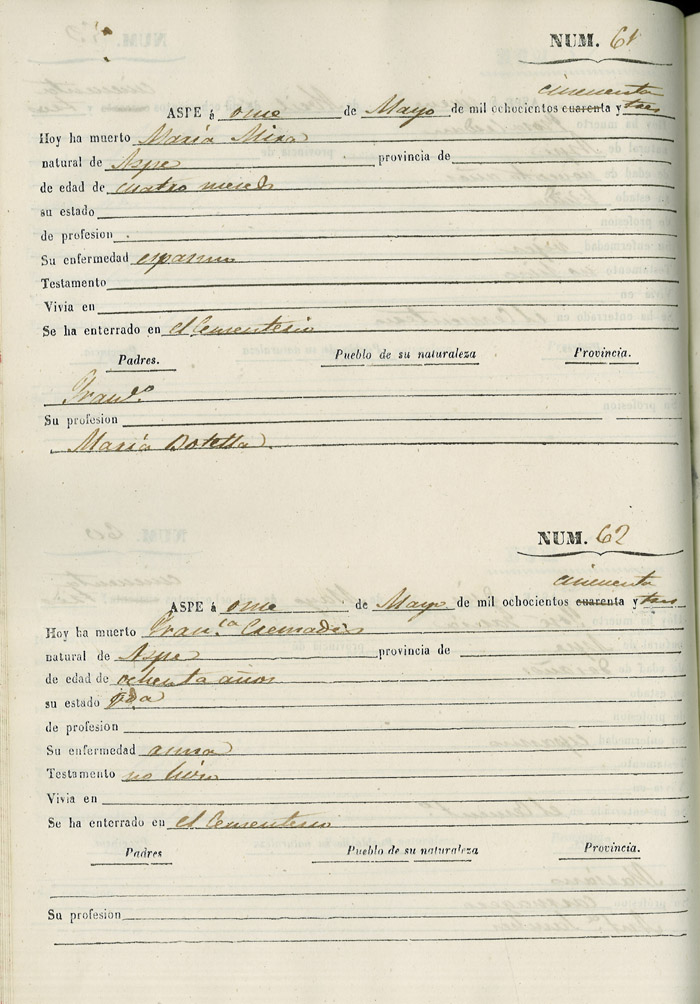 NUM. 61
cincuenta
ASPE á once de Mayo de mil ochocientos cuarenta y tres
Hoy ha muerto María Mira
natural de Aspe provincia de
de edad de cuatro meses
su estado
de profesion
Su enfermedad espasmo
Testamento
Vivia en
Se ha enterrado en el Cementerio
Padres. Pueblo de su naturaleza Provincia.
Franco
Su profesion
María Botella
NUM. 62
cincuenta
ASPE á once de Mayo de mil ochocientos cuarenta y tres
Hoy ha muerto Franca Cremades
natural de Aspe provincia de
de edad de ochenta años
su estado
de profesion
Su enfermedad asma
Testamento no hizo
Vivia en
Se ha enterrado en el Cementerio
Padres Pueblo de su naturaleza Provincia.
Su profesion